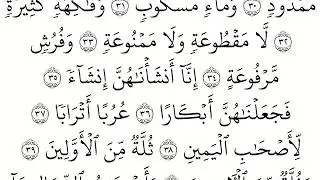 مَّمْدُودٍ ٣٠ وَمَآءٍ مَّسْكُوبٍ ٣١ وَفَٰكِهَةٍ كَثِيرَةٍ
٣٢ لَّا مَقْطُوعَةٍ وَلَا مَمْنُوعَةٍ ٣٣ وَفُرُشٍ
مَّرْفُوعَةٍ ٣٤ إِنَّآ أَنشَأْنَٰهُنَّ إِنشَآءً ٣٥
فَجَعَلْنَٰهُنَّ أَبْكَارًا ٣٦ عُرُبًا أَتْرَابًا ٣٧
لِّأَصْحَٰبِ ٱلْيَمِينِ ٣٨ ثُلَّةٌ مِّنَ ٱلْأَوَّلِينَ ٣٩